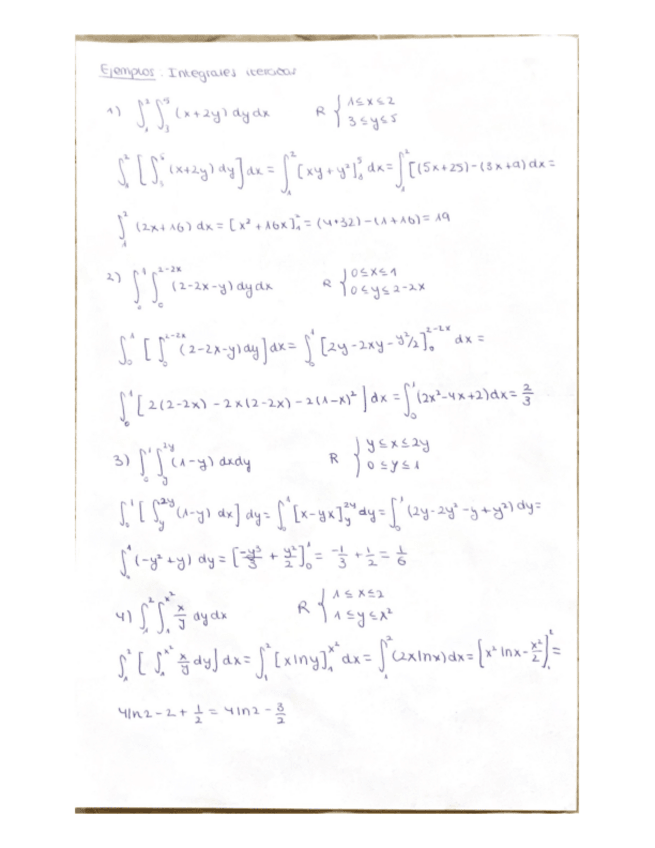 Ejemplos: Integrales iteradas
1) ∫₁² ∫₃⁵ (x+2y) dy dx R { 1≤x≤2
3≤y≤5
∫₁² [ ∫₃⁵ (x+2y) dy] dx = ∫₁² [xy+y²]₃⁵ dx = ∫₁² [(5x+25)-(3x+9) dx =
∫₁² (2x+16) dx = [x²+16x]₁² = (4+32)-(1+16) = 19
2) ∫₀¹ ∫₀²⁻²ˣ (2-2x-y) dy dx R { 0≤x≤1
0≤y≤2-2x
∫₀¹ [ ∫₀²⁻²ˣ (2-2x-y) dy ] dx = ∫₀¹ [2y-2xy-y²/2]₀²⁻²ˣ dx =
∫₀¹ [2(2-2x)-2x(2-2x)-2(1-x)²] dx = ∫₀¹ (2x²-4x+2) dx = 2/3
3) ∫₀¹ ∫_y^2y (1-y) dx dy R { y≤x≤2y
0≤y≤1
∫₀¹ [ ∫_y^2y (1-y) dx] dy = ∫₀¹ [x-yx]_y^2y dy = ∫₀¹ (2y-2y²-y+y²) dy =
∫₀¹ (-y²+y) dy = [-y³/3 + y²/2]₀¹ = -1/3 + 1/2 = 1/6
4) ∫₁² ∫₁^x² x/y dy dx R { 1≤x≤2
1≤y≤x²
∫₁² [ ∫₁^x² x/y dy] dx = ∫₁² [x ln y]₁^x² dx = ∫₁² (2x ln x) dx = [x² ln x - x²/2]₁² =
4 ln 2 - 2 + 1/2 = 4 ln 2 - 3/2